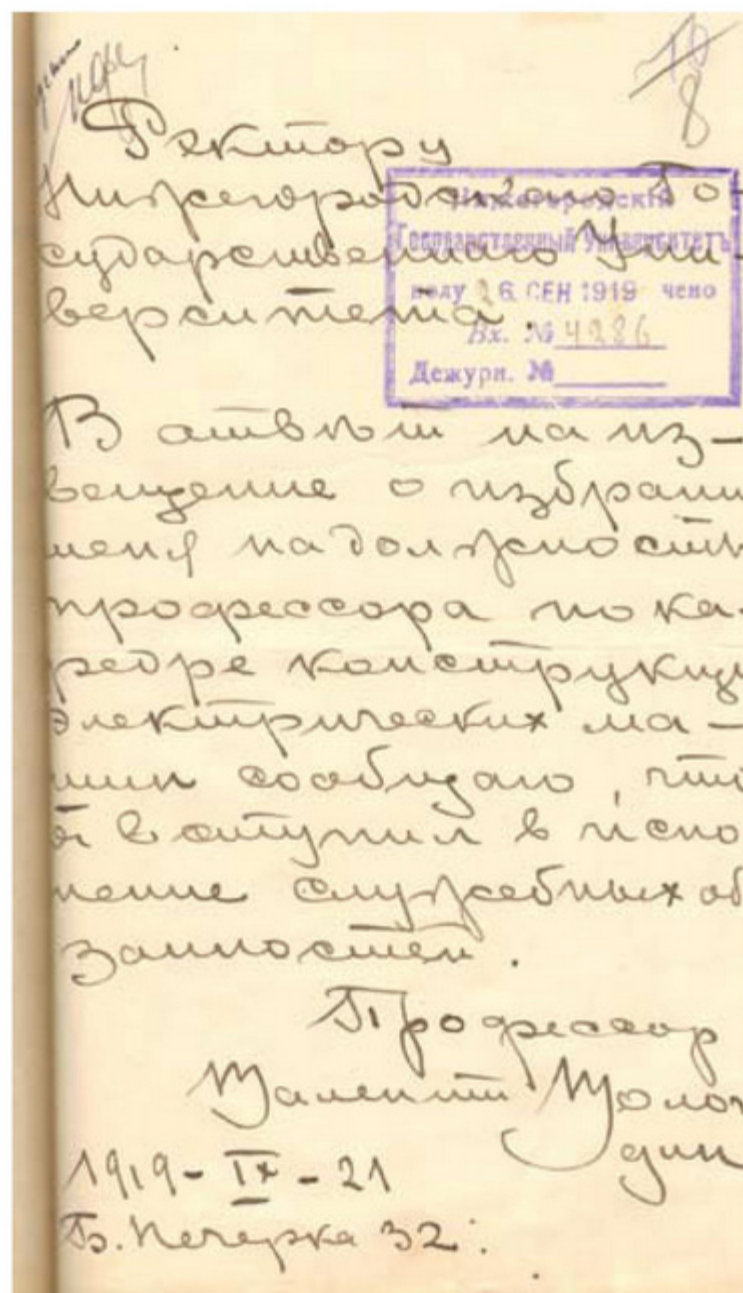 8
Ректору
Нижегородскаго Го-
сударственнаго Уни-
верситета.
Нижегородскій
Государственный Университетъ
полу 26 СЕН 1919 чено
Вх. № 4286
Дежурн. №
В ответ на из-
вещение о избрани
меня на должность
профессора по ка-
федре конструкци
электрических ма-
шин сообщаю, что
я вступил в испо
нение служебных об
занностей.
Профессор
Валентин Волог
дин
1919-IX-21
Б. Печерка 32.